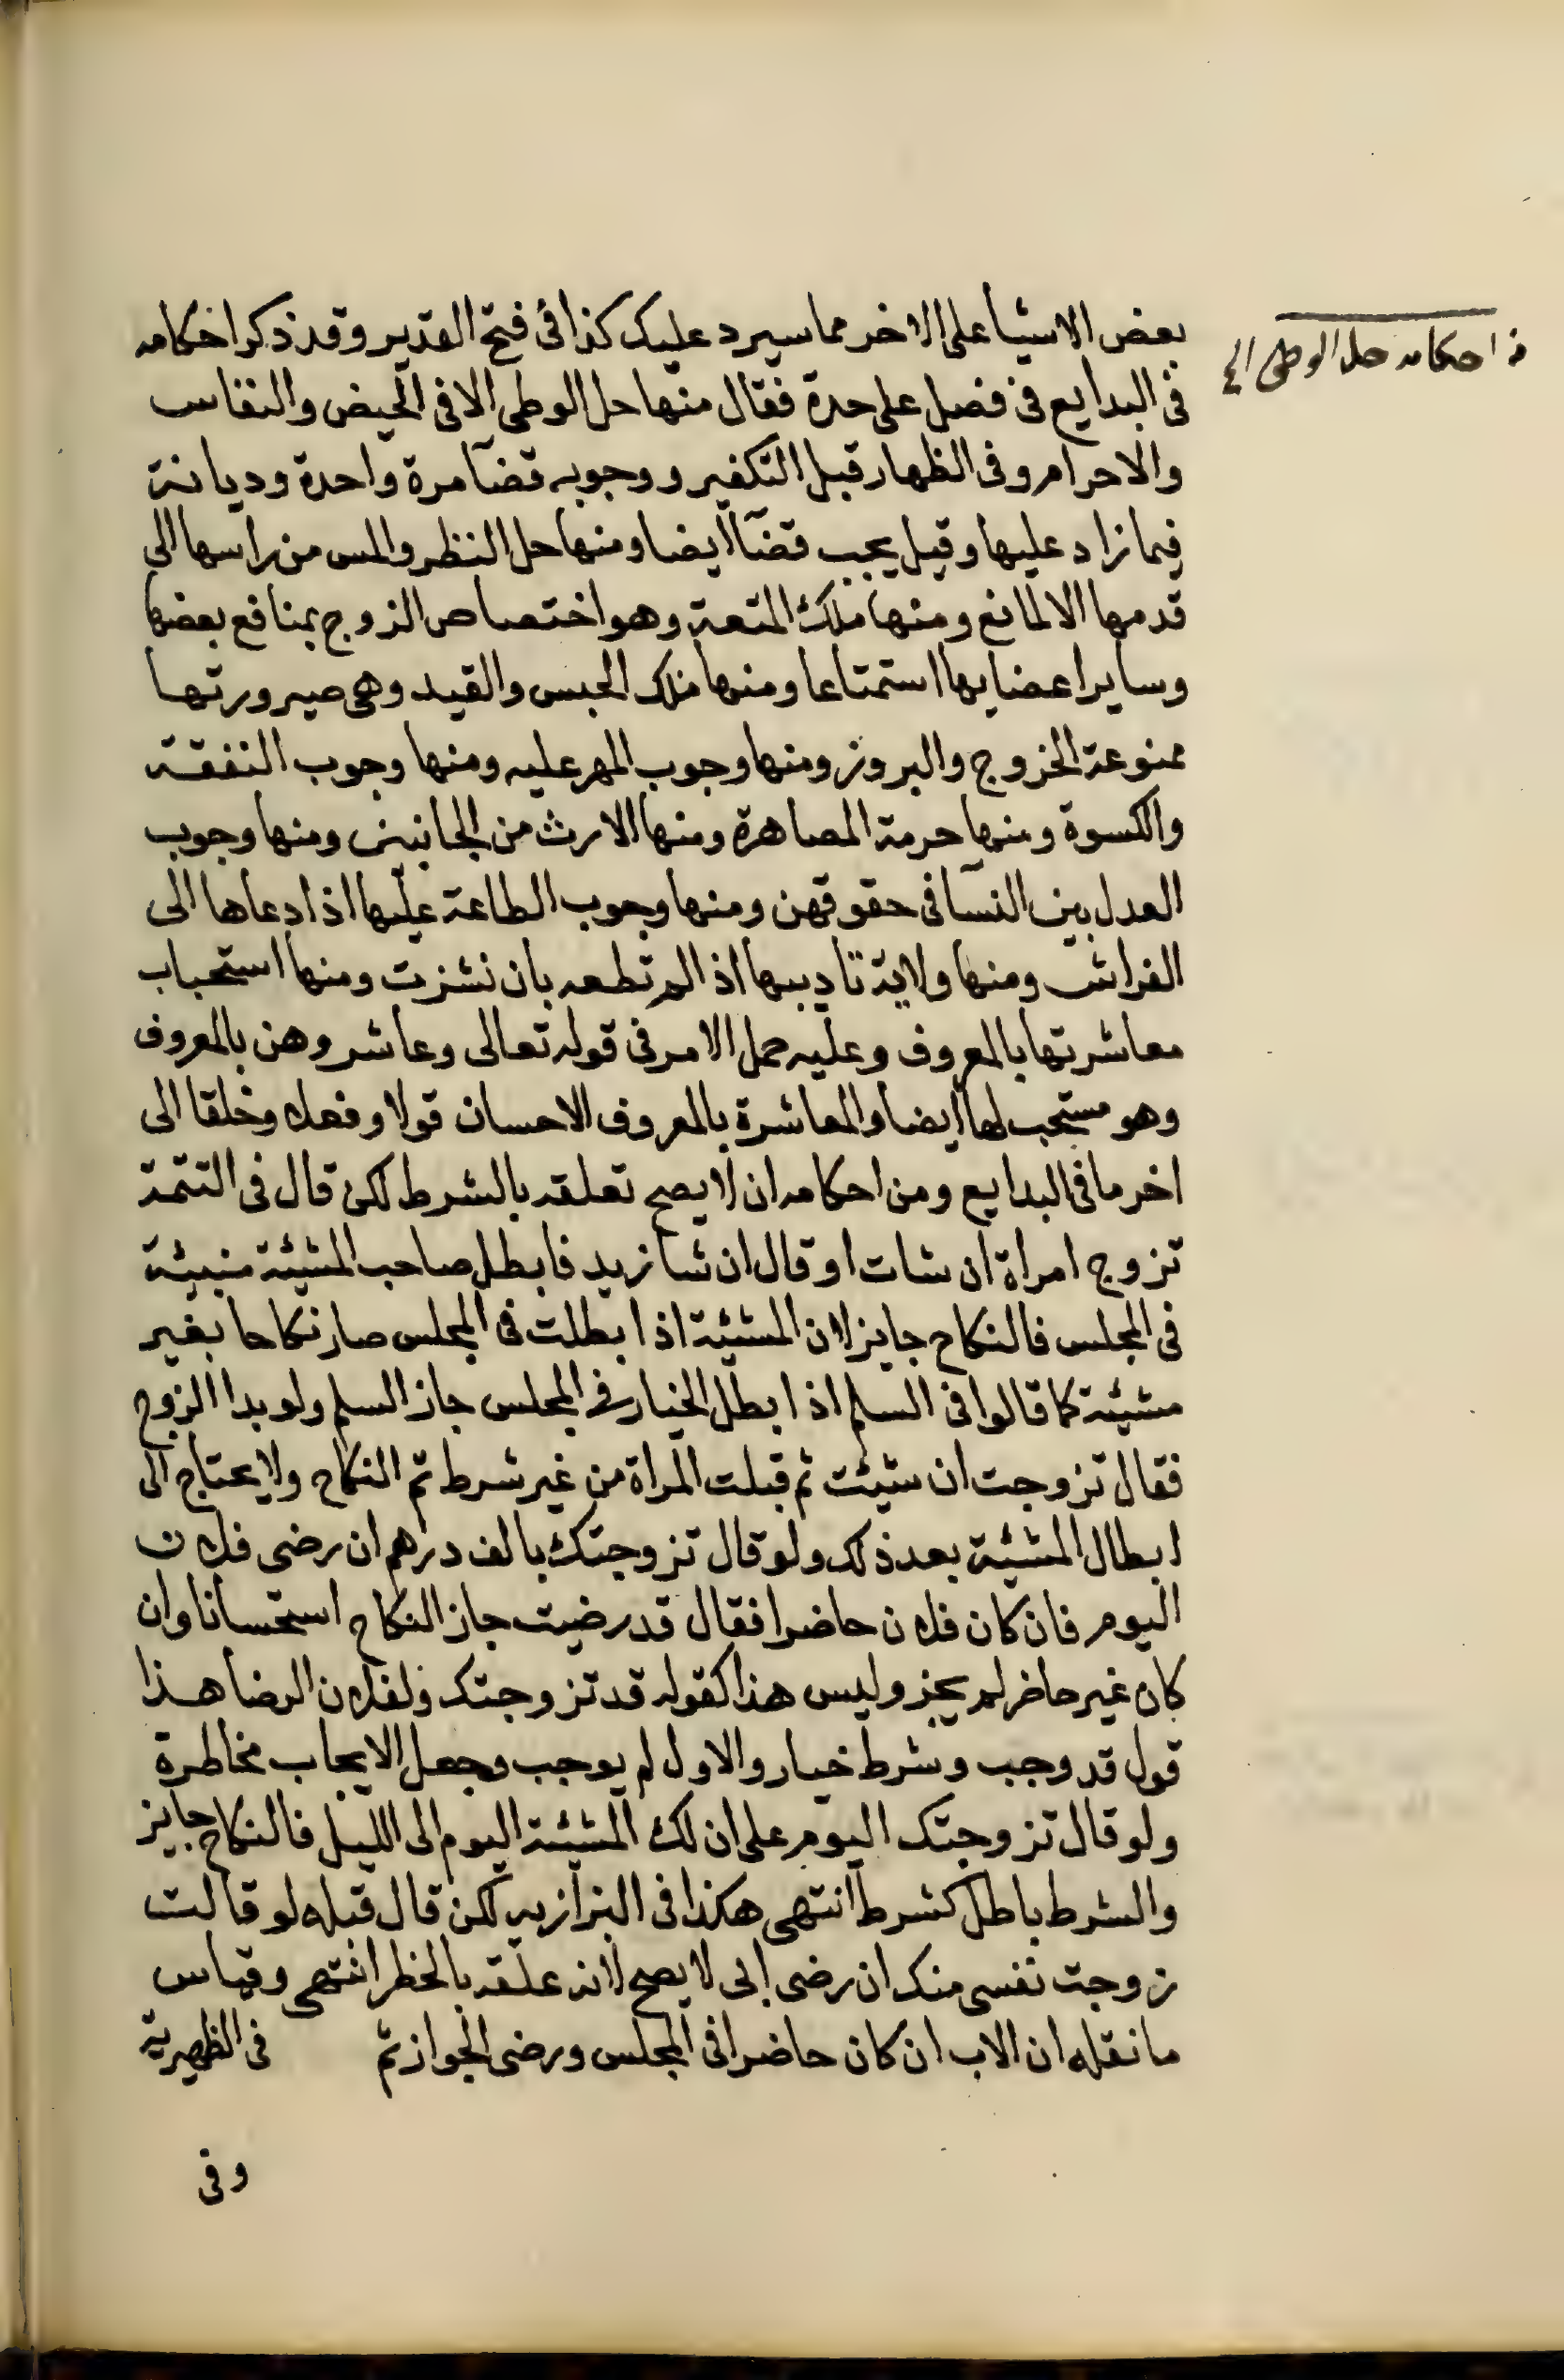 من احكامه حل الوطى الخ
بعض الاشيا على الاخر مما سيرد عليك كذا فى فتح القدير وقد ذكر احكامه
فى البدايع فى فصل على حدة فقال منها حل الوطى الا فى الحيض والنفاس
والاحرام وفى الظهار قبل التكفير ووجوبه قضآ مرة واحدة وديانة
فيما زاد عليها وقيل يجب قضآ ايضا ومنها حل النظر والمس من راسها الى
قدمها الا لمانع ومنها ملك المتعة وهو اختصاص الزوج بمنافع بعضها
وساير اعضايها استمتاعا ومنها ملك الحبس والقيد وهى صيرورتها
ممنوعة الخروج والبروز ومنها وجوب المهر عليه ومنها وجوب النفقة
والكسوة ومنها حرمة المصاهرة ومنها الارث من الجانبين ومنها وجوب
العدل بين النسآ فى حقوقهن ومنها وجوب الطاعة عليها اذا دعاها الى
الفراش ومنها ولاية تاديبها اذا لم تطعه بان نشزت ومنها استحباب
معاشرتها بالمعروف وعليه حمل الامر فى قوله تعالى وعاشروهن بالمعروف
وهو مستحب لها ايضا والمعاشرة بالمعروف الاحسان قولا وفعلا وخلقا الى
اخر ما فى البدايع ومن احكامه ان لا يصح تعلقه بالشرط لكن قال فى التتمة
تزوج امراة ان شات او قال ان شا زيد فابطل صاحب المشيئة مشيئة
فى المجلس فالنكاح جايز لان المشيئة اذا بطلت فى المجلس صار نكاحا بغير
مشيئة كما قالوا فى السلم اذا بطل الخيار فى المجلس جاز السلم ولو بدا الزوج
فقال تزوجت ان شيئت ثم قبلت المراة من غير شرط تم النكاح ولا يحتاج الى
ابطال المشيئة بعد ذلك ولو قال تزوجتك بالف درهم ان رضى فلان
اليوم فان كان فلان حاضرا فقال قد رضيت جاز النكاح استحسانا وان
كان غير حاضر لم يجز وليس هذا كقوله قد تزوجتك ولفلان الرضا هذا
قول قد وجب وشرط خيار والاول لم يوجب وجعل الايجاب مخاطرة
ولو قال تزوجتك اليوم على ان لك المشيئة اليوم الى الليل فالنكاح جايز
والشرط باطل كشرط انتهى هكذا فى البزازيه لكن قال قبله لو قالت
زوجت نفسى منك ان رضى ابى لا يصح لانه علقه بالخطر انتهى وقياس
ما نقله ان الاب ان كان حاضرا فى المجلس ورضى الجواز ثم فى الظهيرية
وفى